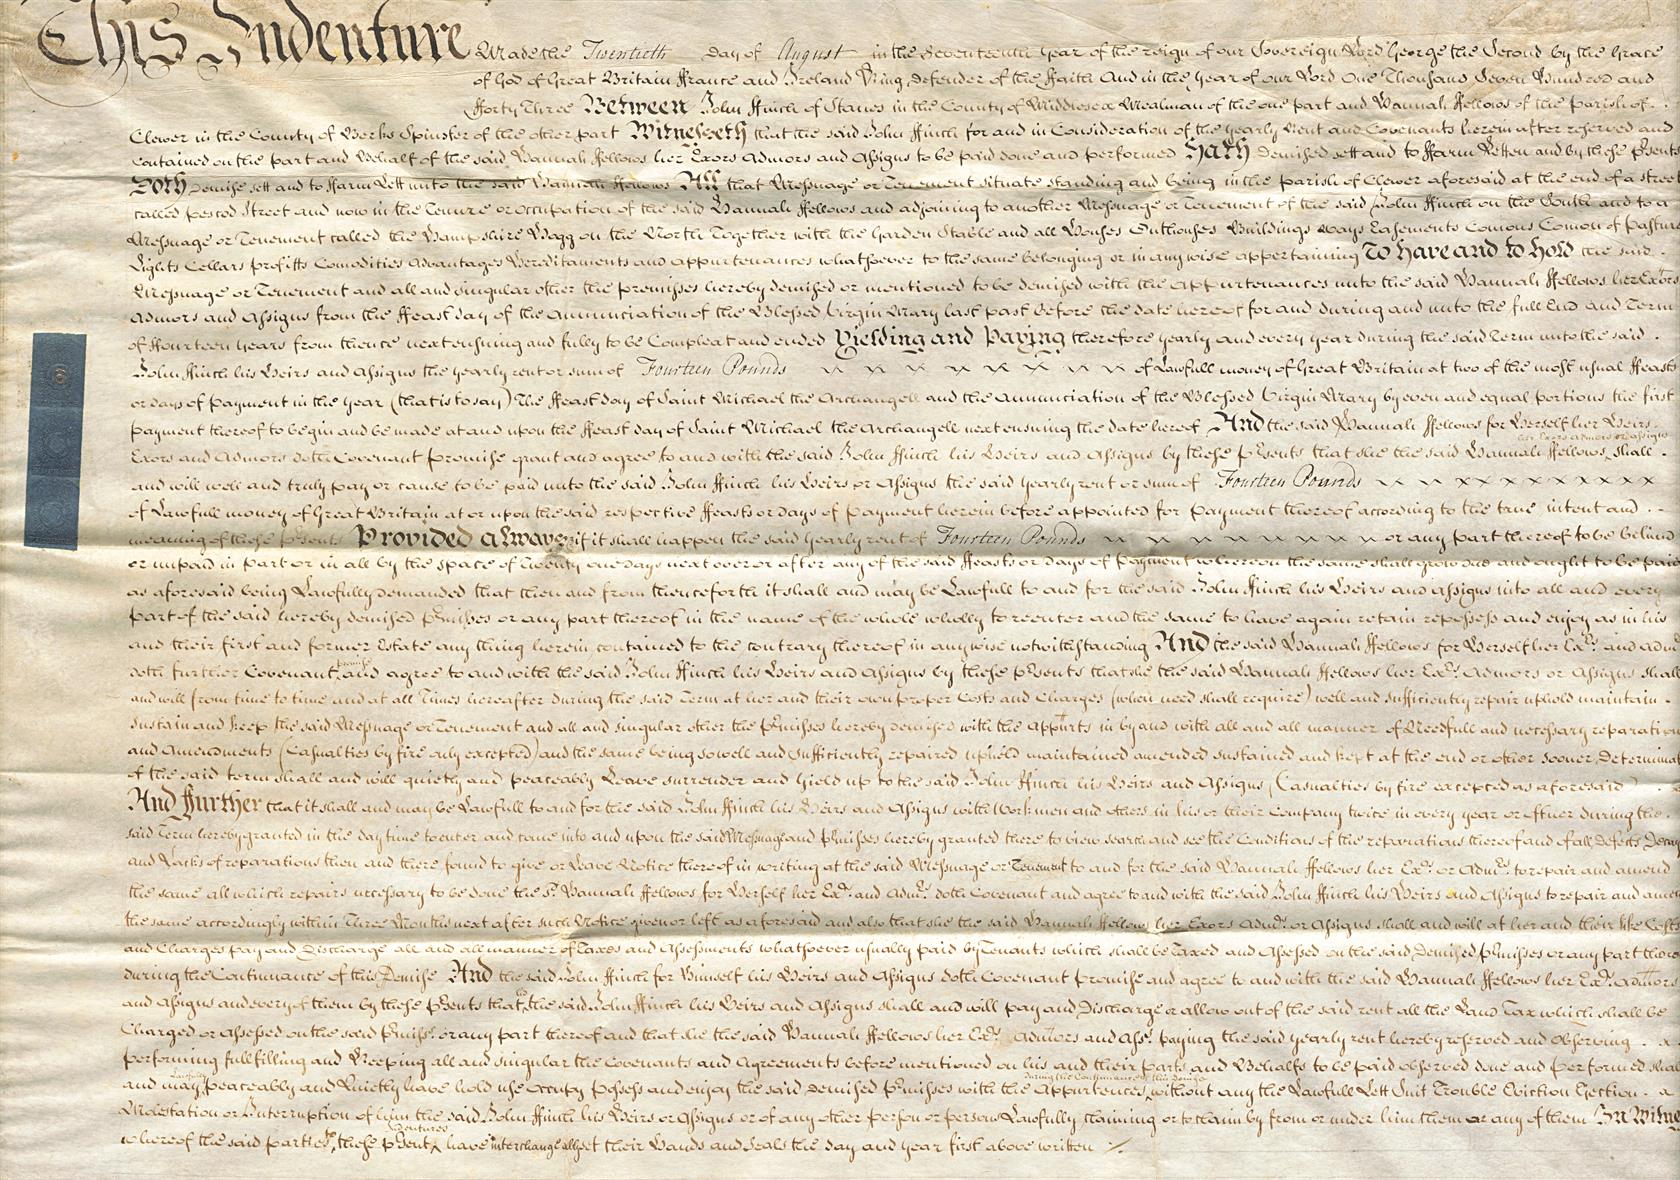 This Indenture Made the Twentieth day of August in the Seventeenth Year of the reign of our Sovereign Lord George the Second by the Grace
of God of Great Britain ffrance and Ireland King defender of the ffaith And in the Year of our Lord One Thousand Seven Hundred and
fforty Three Between John ffinch of Stanes in the County of Middlesex Mealman of the one part and Hannah ffellows of the parish of
Clewer in the County of Berks Spinster of the other part Witnesseth that the said John ffinch for and in Consideration of the yearly Rent and Covenants herein after reserved and
contained on the part and Behalf of the said Hannah ffellows her Exors Admors and Assigns to be paid done and performed Hath demised sett and to ffarm Letten and by these Psents
Doth demise sett and to ffarm Lett unto the said Hannah ffellows All that Messuage or Tenement situate standing and being in the parish of Clewer aforesaid at the end of a street
called pescod Street and now in the Tenure or occupation of the said Hannah ffellows and adjoining to another Messuage or Tenement of the said John ffinch on the South and to a
Messuage or Tenement called the Hampshire Hogg on the North Together with the Garden Stable and all Houses Outhouses Buildings ways Easements Comons Comon of pasture
Lights Cellars profitts Comodities Advantages Hereditaments and appurtenances whatsoever to the same belonging or in any wise appertaining To Have and to hold the said
Messuage or Tenement and all and singular other the premisses hereby demised or mentioned to be demised with the appurtenances unto the said Hannah ffellows her Exors
Admors and Assigns from the ffeast day of the Annunciation of the Blessed Virgin Mary last past before the date hereof for and during and unto the full End and Term
of ffourteen years from thence next ensuing and fully to be Compleat and ended Yielding and Paying therefore yearly and every year during the said term unto the said
John ffinch his Heirs and Assigns the yearly rent or sum of Fourteen Pounds of Lawfull money of Great Britain at two of the most usual ffeasts
or days of payment in the year (that is to say) The ffeast day of Saint Michael the Archangell and the Annunciation of the Blessed Virgin Mary by even and equal portions the first
payment thereof to begin and be made at and upon the ffeast day of Saint Michael the Archangell next ensuing the date hereof And the said Hannah ffellows for Herself her Heirs
Exors and Admors doth Covenant promise grant and agree to and with the said John ffinch his Heirs and Assigns by these Psents that she the said Hannah ffellows her Exors Admors or Assigns shall
and will well and truly pay or cause to be paid unto the said John ffinch his Heirs or Assigns the said yearly rent or sum of Fourteen Pounds
of Lawfull money of Great Britain at or upon the said respective ffeasts or days of payment herein before appointed for payment thereof according to the true intent and
meaning of these Psents Provided always if it shall happen the said yearly rent of Fourteen Pounds or any part thereof to be behind
or unpaid in part or in all by the space of Twenty one days next over or after any of the said ffeasts or days of payment whereon the same shall grow due and ought to be paid
as aforesaid being Lawfully demanded that then and from thenceforth it shall and may be Lawfull to and for the said John ffinch his Heirs and Assigns into all and every
part of the said hereby demised Pmisses or any part thereof in the name of the whole wholly to reenter and the same to have again retain repossess and enjoy as in his
and their first and former Estate any thing herein contained to the contrary thereof in anywise notwithstanding And the said Hannah ffellows for Herself her Exrs and Adm
doth further Covenant promise and agree to and with the said John ffinch his Heirs and Assigns by these Psents that she the said Hannah ffellows her Exrs Admors or Assigns shall
and will from time to time and at all Times hereafter during the said Term at her and their own proper Costs and Charges (when need shall require) well and sufficiently repair uphold maintain
sustain and keep the said Messuage or Tenement and all and singular other the Pmisses hereby demised with the Appurts in by and with all and all manner of Needfull and necessary reparations
and Amendments (Casualties by fire only excepted) and the same being so well and sufficiently repaired upheld maintained amended sustained and kept at the end or other sooner Determinat
of the said term shall and will quietly and peaceably Leave surrender and yield up to the said John ffinch his Heirs and Assigns (Casualties by fire excepted as aforesaid)
And ffurther that it shall and may be Lawfull to and for the said John ffinch his Heirs and Assigns with Workmen and others in his or their Company twice in every year or oftner during the
said Term hereby granted in the day time to enter and came into and upon the said Messuage and Pmisses hereby granted there to view search and see the Conditions of the reparations thereof and of all defects Decay
and Lacks of reparations then and there found to give or Leave Notice thereof in writing at the said Messuage or Tenement to and for the said Hannah ffellows her Exrs or Admrs to repair and amend
the same all which repairs necessary to be done the sd Hannah ffellows for Herself her Exrs and Admrs doth Covenant and agree to and with the said John ffinch his Heirs and Assigns to repair and amend
the same accordingly within Three Months next after such Notice given or left as aforesaid and also that she the said Hannah ffellows her Exors Admrs or Assigns shall and will at her and their like Costs
and Charges pay and Discharge all and all manner of Taxes and Assessments whatsoever usually paid by Tenants which shall be Taxed and Assessed on the said Demised Pmisses or any part thereof
during the Continuance of this Demise And the said John ffinch for Himself his Heirs and Assigns doth Covenant promise and agree to and with the said Hannah ffellows her Exrs Admors
and Assigns and every of them by these Psents that he the said John ffinch his Heirs and Assigns shall and will pay and Discharge or allow out of the said rent all the Land Tax which shall be
Charged or Assessed on the said Pmisses or any part thereof and that she the said Hannah ffellows her Exrs Admors and Asss paying the said yearly rent hereby reserved and Observing
performing fullfilling and Keeping all and singular the Covenants and Agreements before mentioned on his and their parts and Behalfs to be paid observed done and performed shall
and may Lawfully peaceably and Quietly have hold use Occupy Possess and enjoy the said demised Pmisses with the Appurtences during the Continuance of this Demise without any the Lawfull Lett Suit Trouble Eviction Ejection
Molestation or Interruption of him the said John ffinch his Heirs or Assigns or of any other person or persons Lawfully claiming or to claim by from or under him them or any of them In Witne
whereof the said parties to these Psent Indentures have interchangeably set their Hands and Seals the day and year first above written